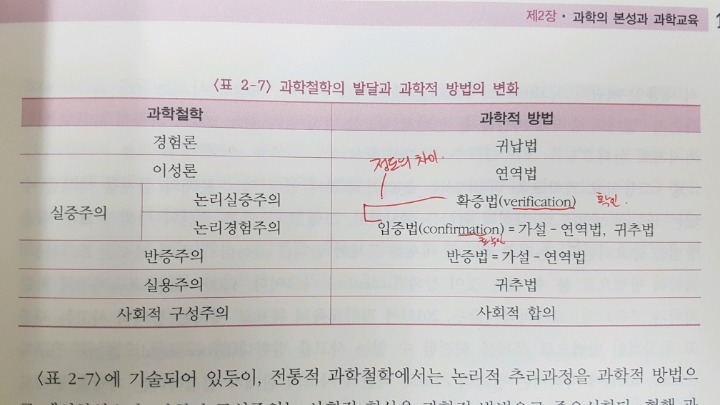 제2장 · 과학의 본성과 과학교육
〈표 2-7〉 과학철학의 발달과 과학적 방법의 변화
과학철학 과학적 방법
경험론 귀납법
이성론 연역법
정도의 차이.
실증주의 논리실증주의 확증법(verification) 확인.
논리경험주의 입증법(confirmation) = 가설 - 연역법, 귀추법
반증주의 반증법 = 가설 - 연역법
실용주의 귀추법
사회적 구성주의 사회적 합의
〈표 2-7〉에 기술되어 있듯이, 전통적 과학철학에서는 논리적 추리과정을 과학적 방법으